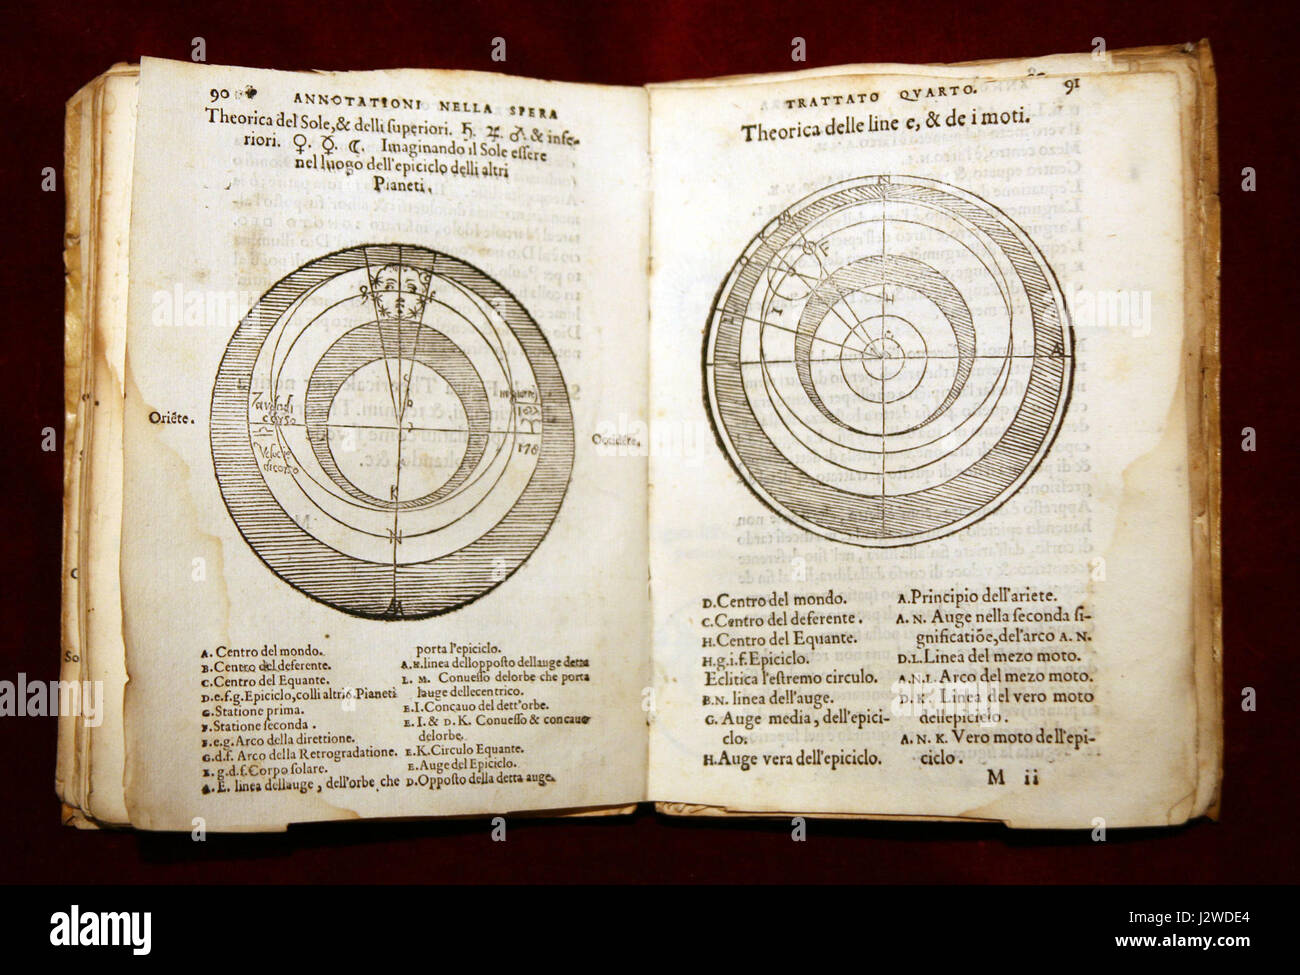 90
ANNOTATIONI NELLA SPERA
Theorica del Sole, & delli superiori. ♄. ♃. ♂. & infe-
riori. ♀. ☿. ☾. Imaginando il Sole essere
nel luogo dell'epiciclo delli altri
Pianeti.
Oriẽte.
Occidẽte.
Tardo di
corso
Veloce
di corso
M
N
K
A
A. Centro del mondo.
B. Centro del deferente.
C. Centro del Equante.
D.e.f.g. Epiciclo, colli altri 6. Pianeti
G. Statione prima.
F. Statione seconda.
F.e.g. Arco della direttione.
G.d.f. Arco della Retrogradatione.
E.g.d.f. Corpo solare.
A.E. linea dellauge, dell'orbe, che
porta l'epiciclo.
A.H. linea dellopposto dellauge detta
L. M. Conuesso delorbe che porta
lauge dellecentrico.
E.I. Concauo del dett'orbe.
E. I. & D. K. Conuesso & concauo
delorbe.
E.K. Circulo Equante.
E. Auge del Epiciclo.
D. Opposto della detta auge.
91
TRATTATO QVARTO.
Theorica delle line e, & de i moti.
N
K
F
I
H
A
D. Centro del mondo.
C. Centro del deferente.
H. Centro del Equante.
H.g.i.f. Epiciclo.
Eclitica l'estremo circulo.
B.N. linea dell'auge.
G. Auge media, dell'epici-
clo.
H. Auge vera dell'epiciclo.
A. Principio dell'ariete.
A. N. Auge nella seconda si-
gnificatiõe, del'arco A. N.
D.L. Linea del mezo moto.
A.N.L. Arco del mezo moto.
D. K. Linea del vero moto
dellepiciclo.
A. N. K. Vero moto dell'epi-
ciclo.
M ii
So
alamy
Image ID: J2WDE4
www.alamy.com